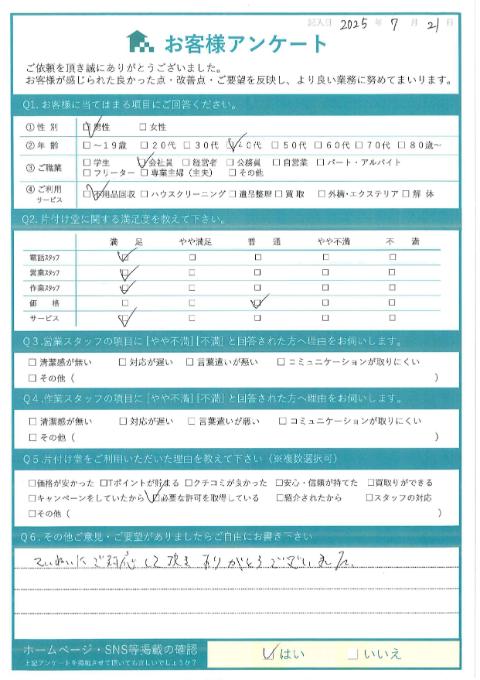 記入日 2025 年 7 月 21 日
お客様アンケート
ご依頼を頂き誠にありがとうございました。
お客様が感じられた良かった点・改善点・ご要望を反映し、より良い業務に努めてまいります。
Q1. お客様に当てはまる項目にご回答ください。
① 性 別 ☑男性 □女性
② 年 齢 □～19歳 □20代 □30代 ☑40代 □50代 □60代 □70代 □80歳～
③ ご職業 □学生 ☑会社員 □経営者 □公務員 □自営業 □パート・アルバイト
□フリーター □専業主婦（主夫） □その他
④ ご利用サービス ☑不用品回収 □ハウスクリーニング □遺品整理 □買取 □外構・エクステリア □解体
Q2. 片付け堂に関する満足度を教えて下さい。
満 足 やや満足 普 通 やや不満 不 満
電話スタッフ ☑ □ □ □ □
営業スタッフ ☑ □ □ □ □
作業スタッフ ☑ □ □ □ □
価 格 □ □ ☑ □ □
サービス ☑ □ □ □ □
Q3. 営業スタッフの項目に［やや不満］［不満］と回答された方へ理由をお伺いします。
□清潔感が無い □対応が遅い □言葉遣いが悪い □コミュニケーションが取りにくい
□その他（ ）
Q4. 作業スタッフの項目に［やや不満］［不満］と回答された方へ理由をお伺いします。
□清潔感が無い □対応が遅い □言葉遣いが悪い □コミュニケーションが取りにくい
□その他（ ）
Q5. 片付け堂をご利用いただいた理由を教えて下さい（※複数選択可）
□価格が安かった □Tポイントが貯まる □クチコミが良かった □安心・信頼が持てた □買取りができる
□キャンペーンをしていたから ☑必要な許可を取得している □紹介されたから □スタッフの対応
□その他（ ）
Q6. その他ご意見・ご要望がありましたらご自由にお書き下さい
ていねいにご対応して頂きありがとうございました。
ホームページ・SNS等掲載の確認
上記アンケートを掲載させて頂いても宜しいでしょうか？
☑はい □いいえ